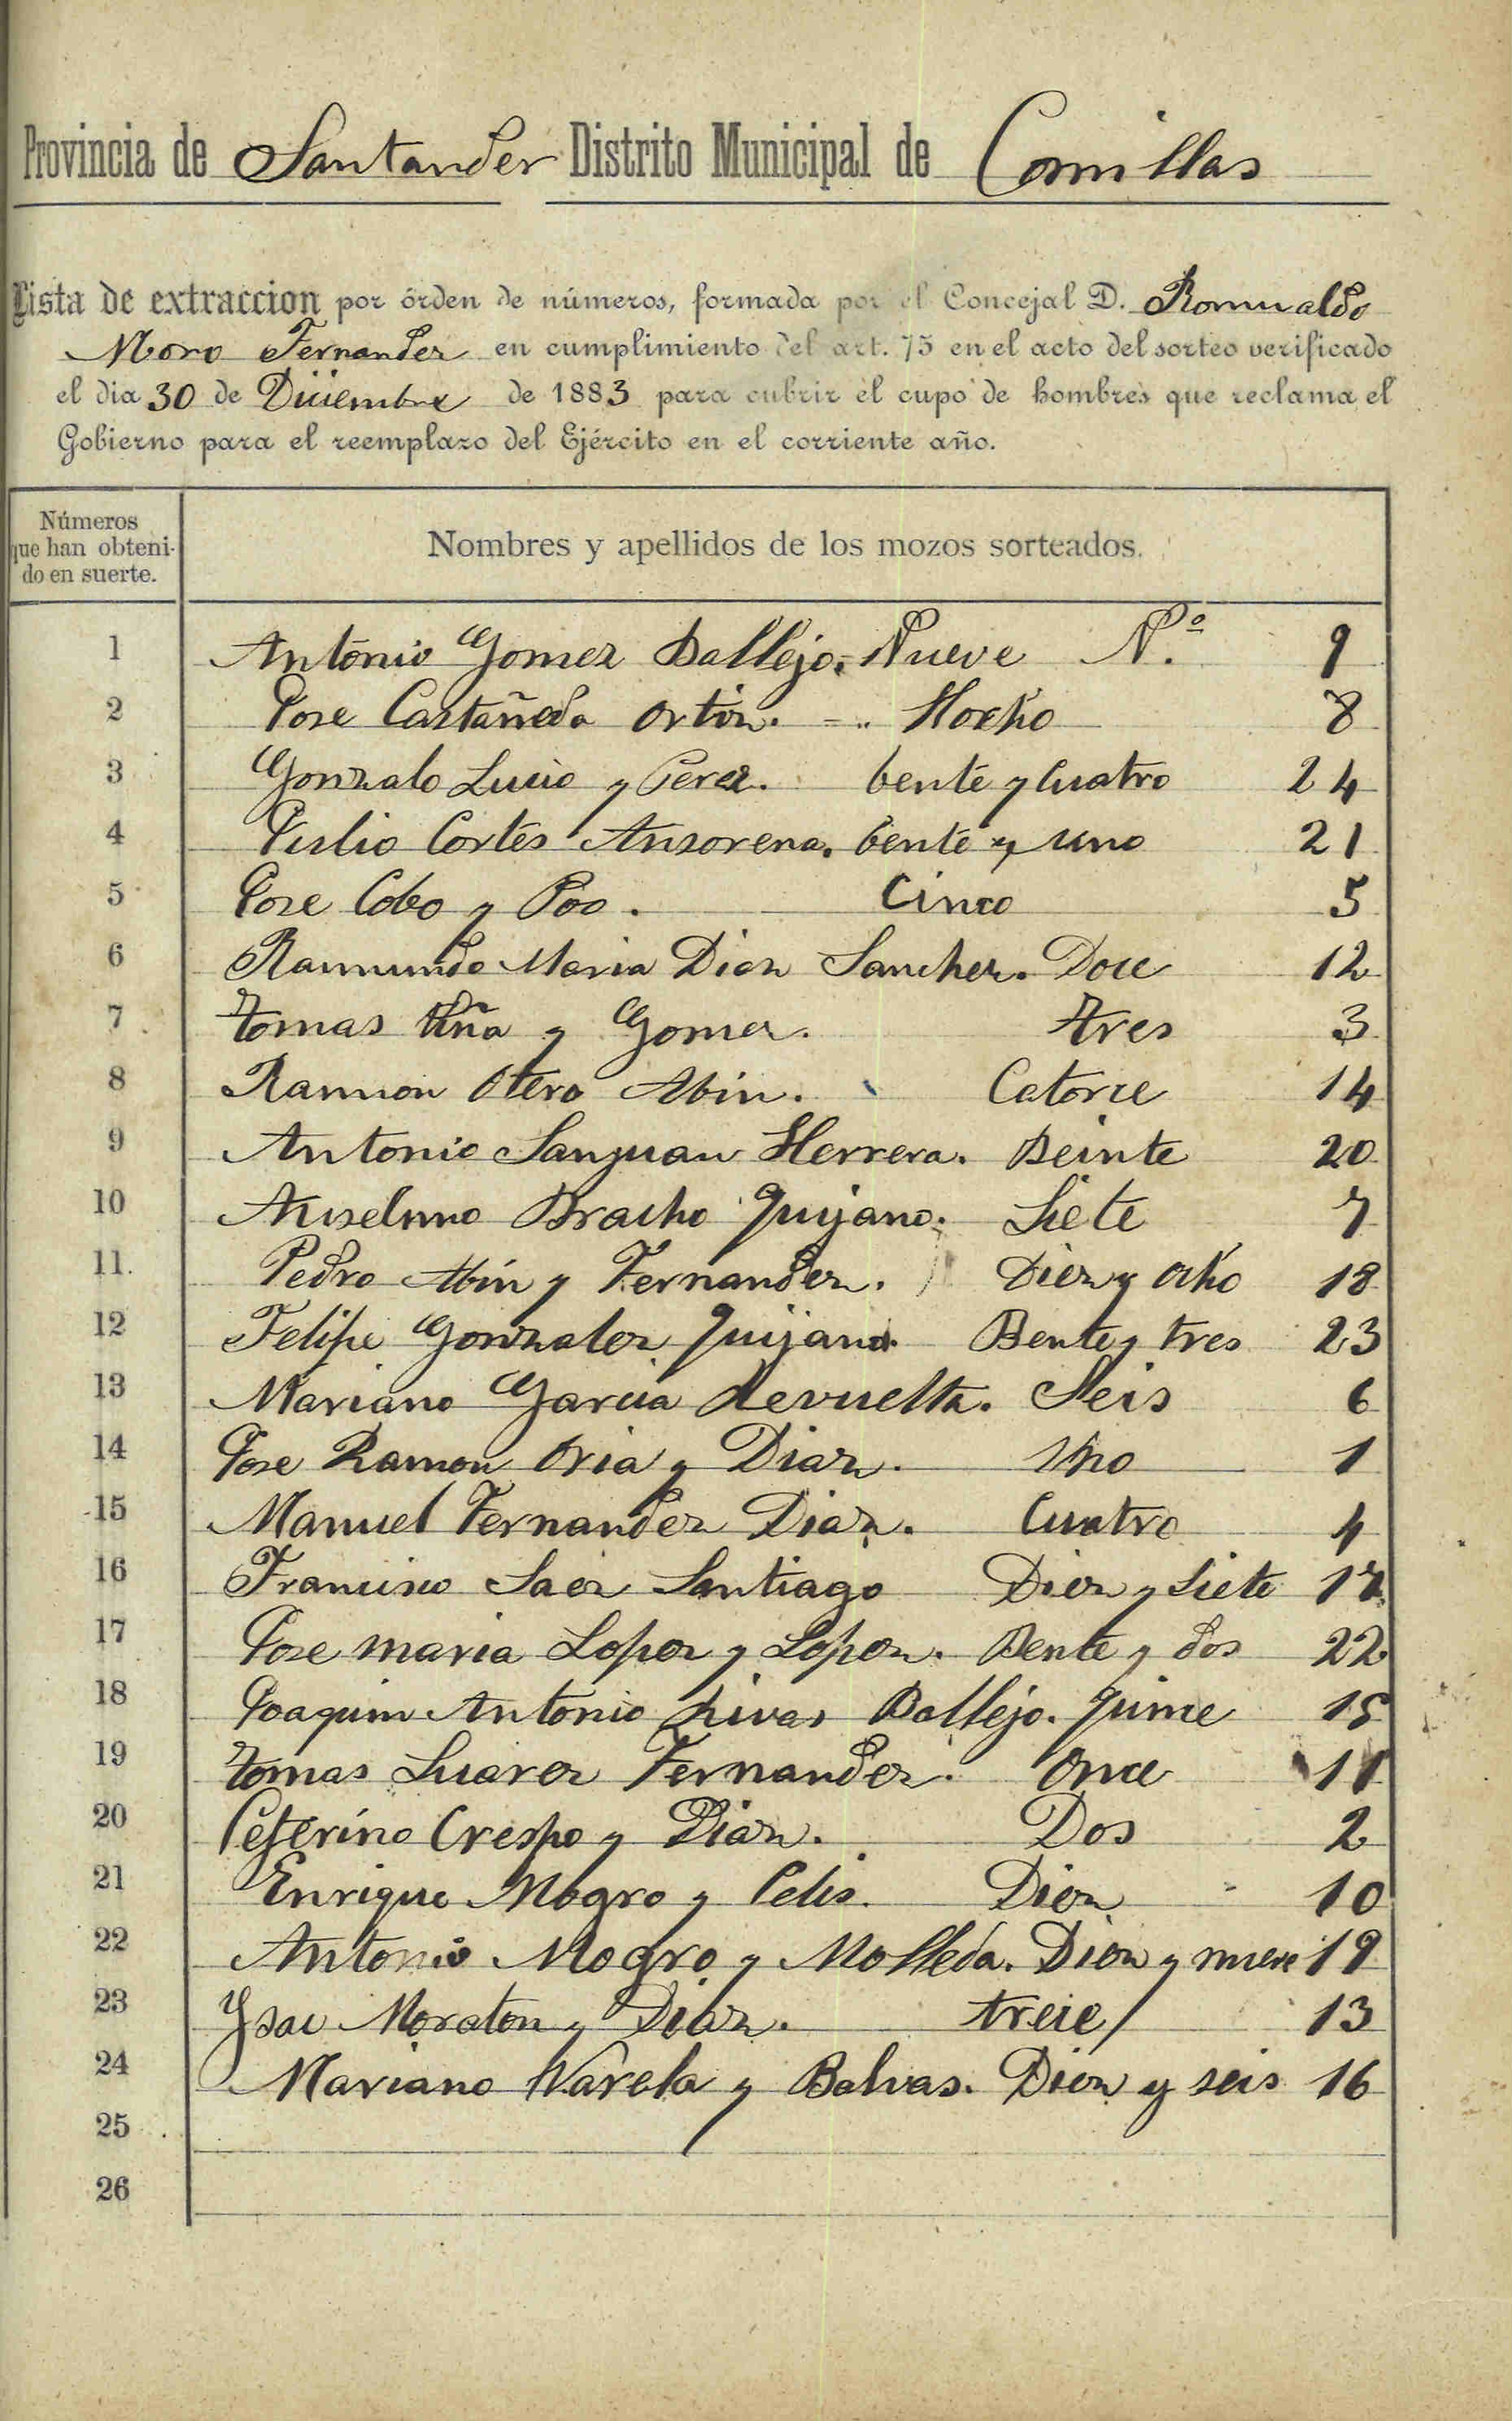 Provincia de Santander Distrito Municipal de Comillas
Lista de extraccion por órden de números, formada por el Concejal D. Romualdo
Moro Fernandez en cumplimiento del art. 75 en el acto del sorteo verificado
el dia 30 de Diciembre de 1883 para cubrir el cupo de hombres que reclama el
Gobierno para el reemplazo del Ejército en el corriente año.
Números que han obteni-
do en suerte.
Nombres y apellidos de los mozos sorteados.
1 Antonio Gomez Ballejo. Nueve Nº. 9
2 Jose Castañeda Ortiz. Hocho 8
3 Gonzalo Lucio y Perez. bente y Cuatro 24
4 Julio Cortés Ansorena. bente y uno 21
5 Jose Cobo y Poo. Cinco 5
6 Raimundo Maria Diaz Sanchez. Doce 12
7 tomas Uña y Gomez. tres 3
8 Ramon Otero Abin. Catorce 14
9 Antonio Sanjuan Herrera. Beinte 20
10 Anselmo Bracho Quijano. Siete 7
11 Pedro Abin y Fernandez. Diez y ocho 18
12 Felipe Gonzalez Quijano. Bente y tres 23
13 Mariano Garcia Revuelta. Seis 6
14 Jose Ramon Oria y Diaz. Uno 1
15 Manuel Fernandez Diaz. Cuatro 4
16 Francisco Saez Santiago Diez y Siete 17
17 Jose maria Lopez y Lopez. Bente y dos 22
18 Joaquin Antonio Rivas Ballejo. Quince 15
19 tomas Suarez Fernandez. Once 11
20 Ceferino Crespo y Diaz. Dos 2
21 Enrique Mogro y Celis. Diez 10
22 Antonio Mogro y Molleda. Diez y nueve 19
23 Ysac Moraton y Diaz. trece 13
24 Mariano Varela y Balvas. Diez y seis 16
25
26